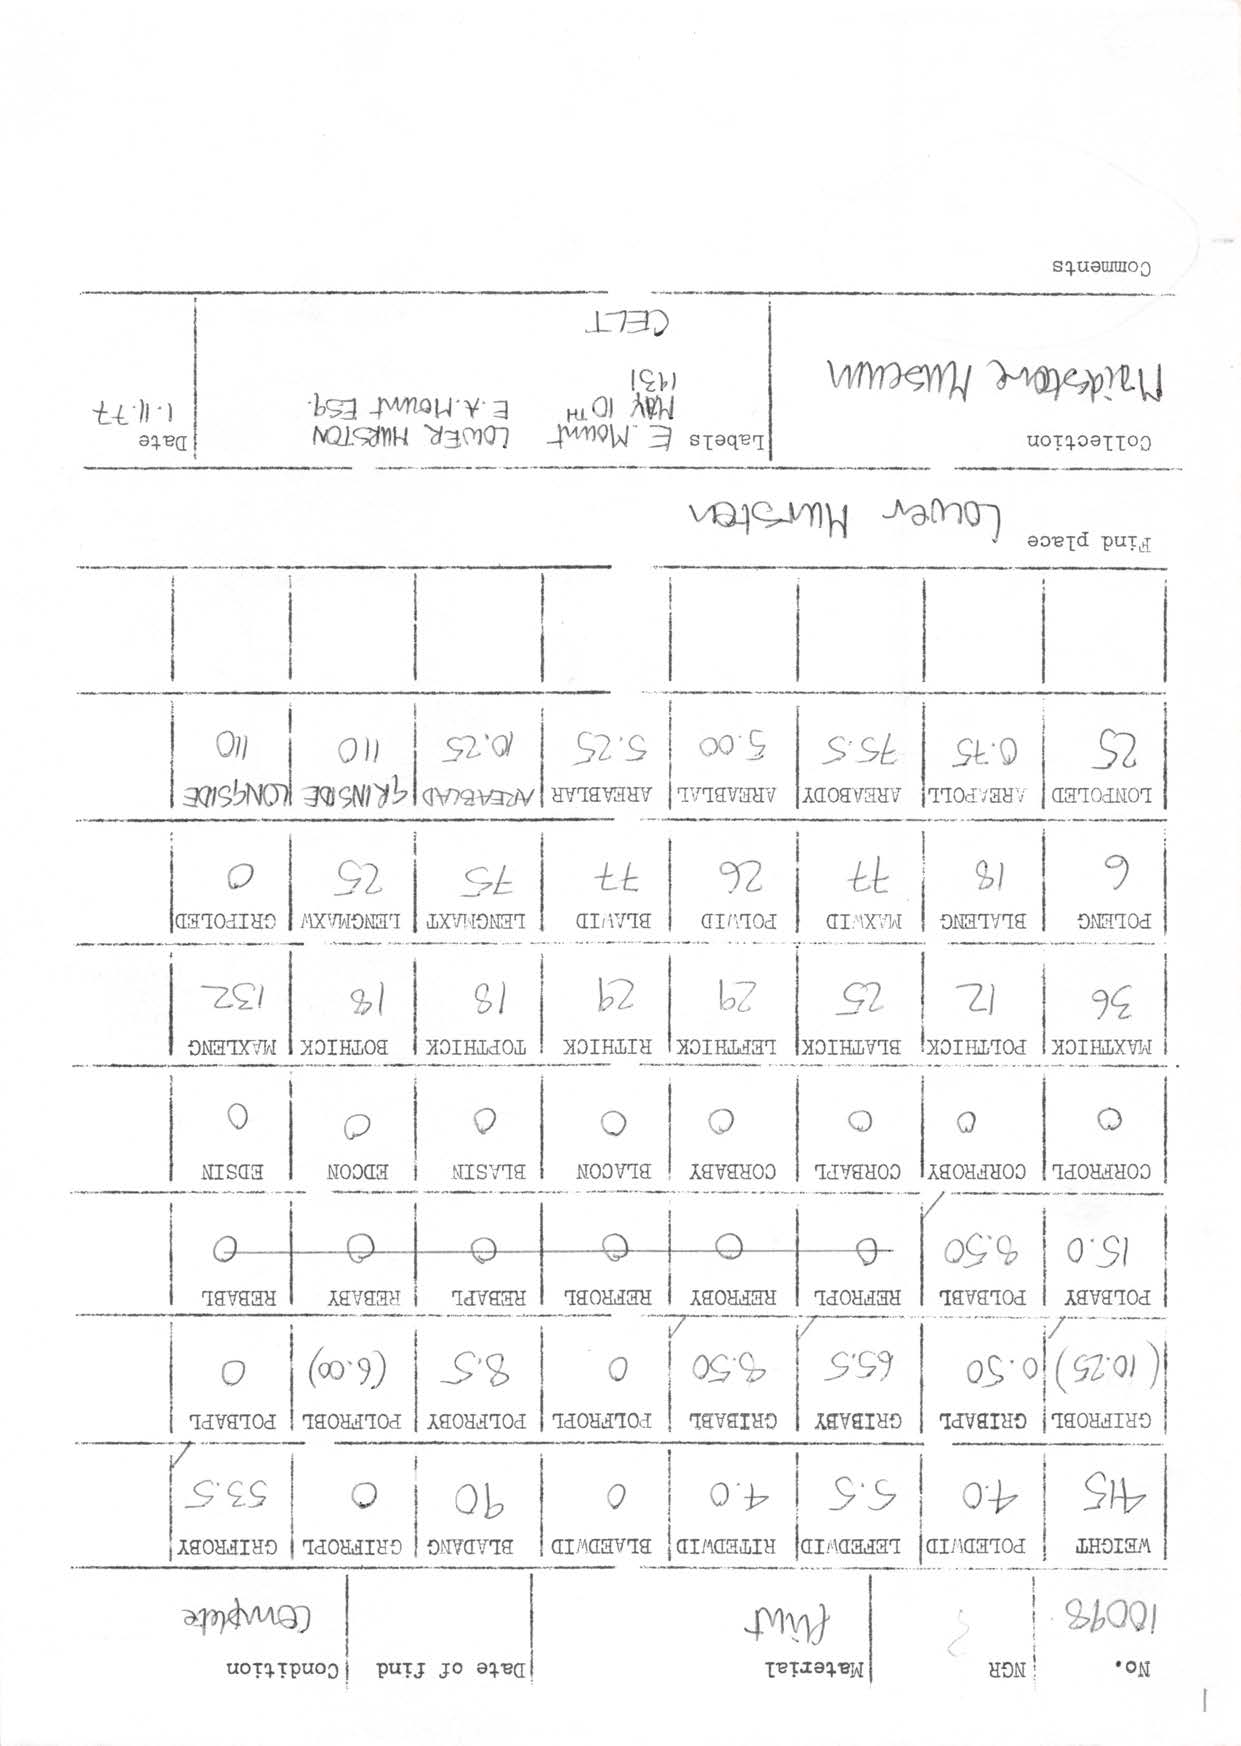 1
No. NGR Material Date of find Condition
10098 ? flint Complete
WEIGHT POLEDWID LEFEDWID RITEDWID BLAEDWID BLADANG GRIFROPL GRIFROBY
415 4.0 5.5 4.0 0 90 0 53.5
GRIFROBL GRIBAPL GRIBABY GRIBABL POLFROPL POLFROBY POLFROBL POLBAPL
(10.25) 0.50 65.5 8.50 0 8.5 (6.00) 0
POLBABY POLBABL REFROPL REFROBY REFROBL REBAPL REBABY REBABL
15.0 8.50 0 0 0 0 0 0
CORFROPL CORFROBY CORBAPL CORBABY BLACON BLASIN EDCON EDSIN
0 0 0 0 0 0 0 0
MAXTHICK POLTHICK BLATHICK LEFTHICK RITHICK TOPTHICK BOTHICK MAXLENG
36 12 25 29 29 18 18 132
POLENG BLALENG MAXWID POLWID BLAWID LENGMAXT LENGMAXW GRIPOLED
6 18 77 26 77 75 25 0
LONPOLED AREAPOLL AREABODY AREABLAL AREABLAR AREABLAD GRINSIDE LONGSIDE
25 0.75 75.5 5.00 5.25 10.25 110 110
Find place Lower Murston
Collection Labels E. Mount LOWER MURSTON Date
Maidstone Museum MAY 10TH E.A. Mount ESQ. 1.11.77
1931
CELT
Comments